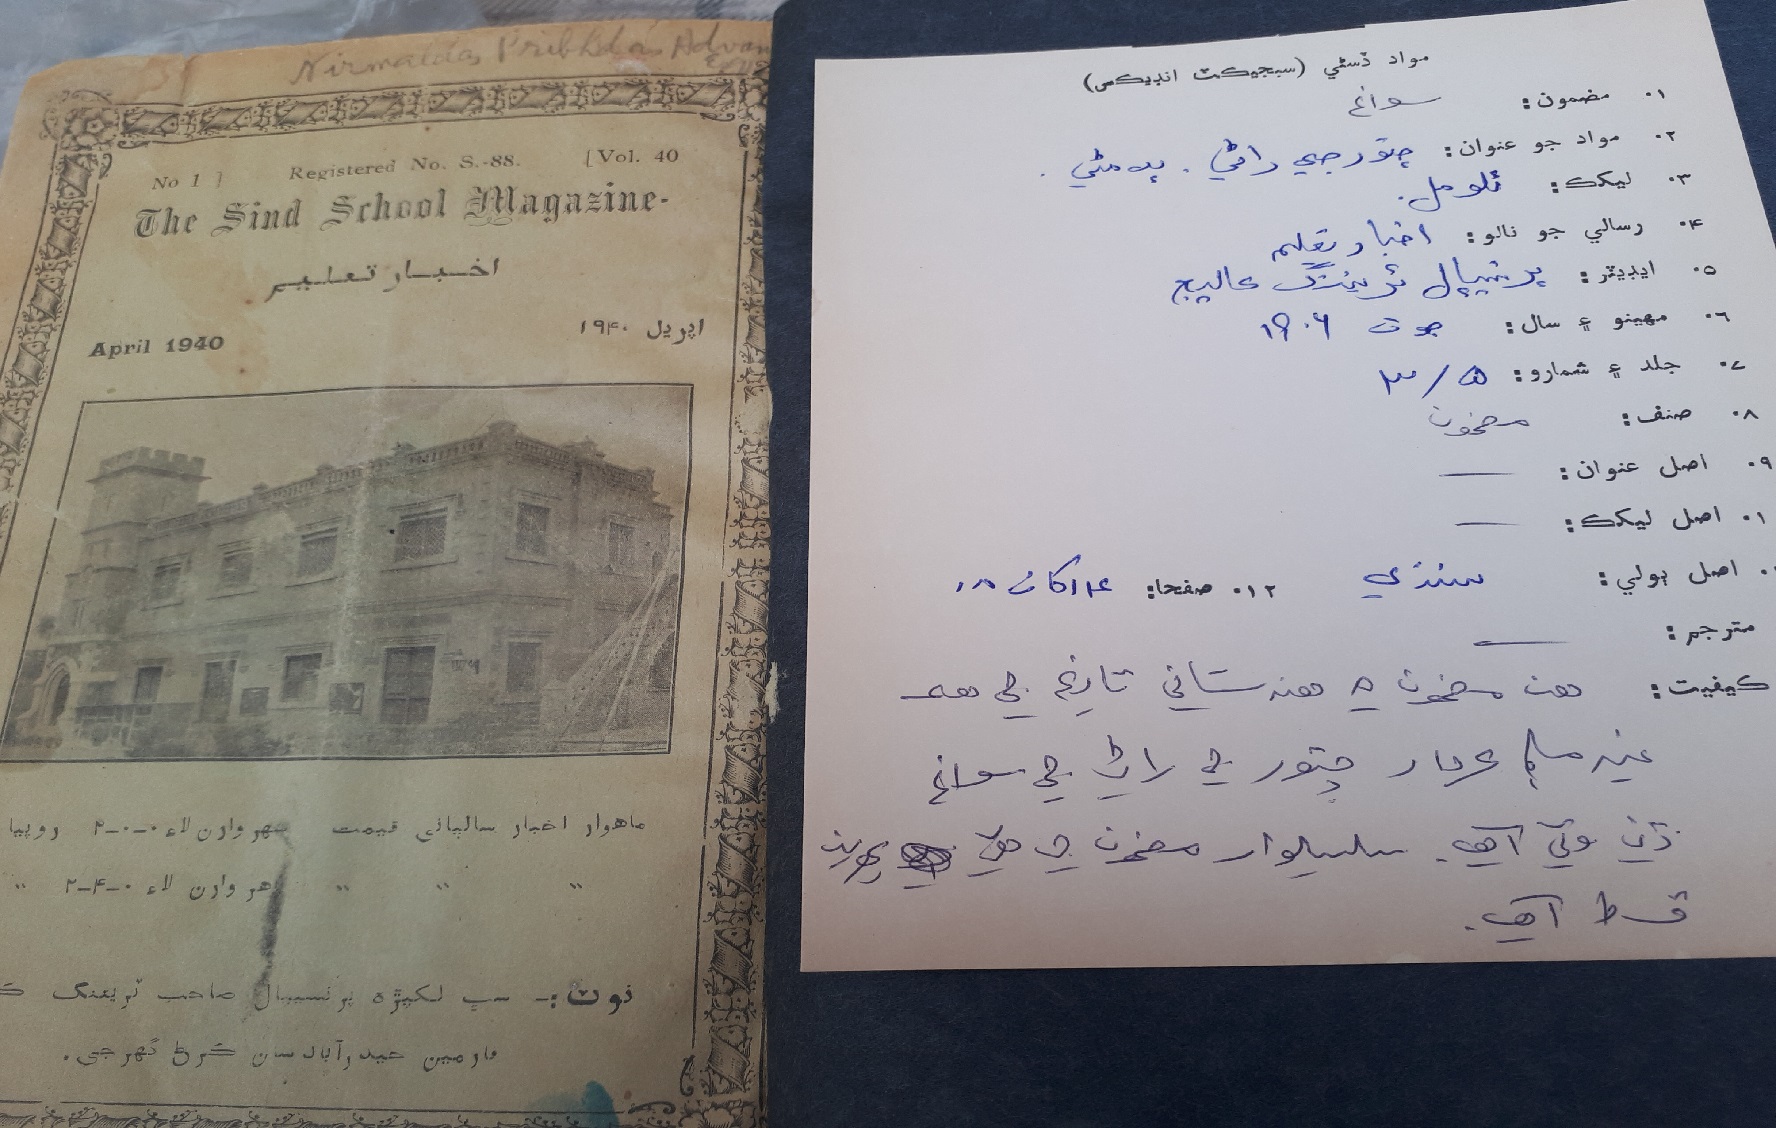 Nirmaldas Pribhdas Advani
No 1 ] Registered No. S.-88. [Vol. 40
The Sind School Magazine-
اخبار تعليم
April 1940 اپريل ۱۹۴۰
ماهوار اخبار ساليانی قيمت شهر وارن لاء ۰-۰-۲ روپيا
" " " هر وارن لاء ۰-۴-۲ "
نوٽ:- سڀ لکپڙه پرنسيپال صاحب ٽريننگ
فارمين حيدرآباد سان ڪرڻ گهرجي.
مواد ڏسڻي (سبجيڪٽ انڊيڪس)
۱. مضمون: سوانح
۲. مواد جو عنوان: چتور جي راڻي. پدمڻي.
۳. ليکڪ: ٿلو مل.
۴. رسالي جو نالو: اخبار تعليم
۵. ايڊيٽر: پرنسيپال ٽريننگ ڪاليج
۶. مهينو ۽ سال: جون ۱۹۰۶
۷. جلد ۽ شمارو: ۵/۳
۸. صنف: مضمون
۹. اصل عنوان: —
۱. اصل ليکڪ: —
اصل ٻولي: سنڌي ۱۲. صفحا: ۱۴ کان ۱۸
مترجم: —
ڪيفيت: هن مضمون ۾ هندستاني تاريخ جي هڪ
چتور جي راڻي جي سوانح
ڏني وئي آهي. سلسليوار مضمون جي هي
قسط آهي.